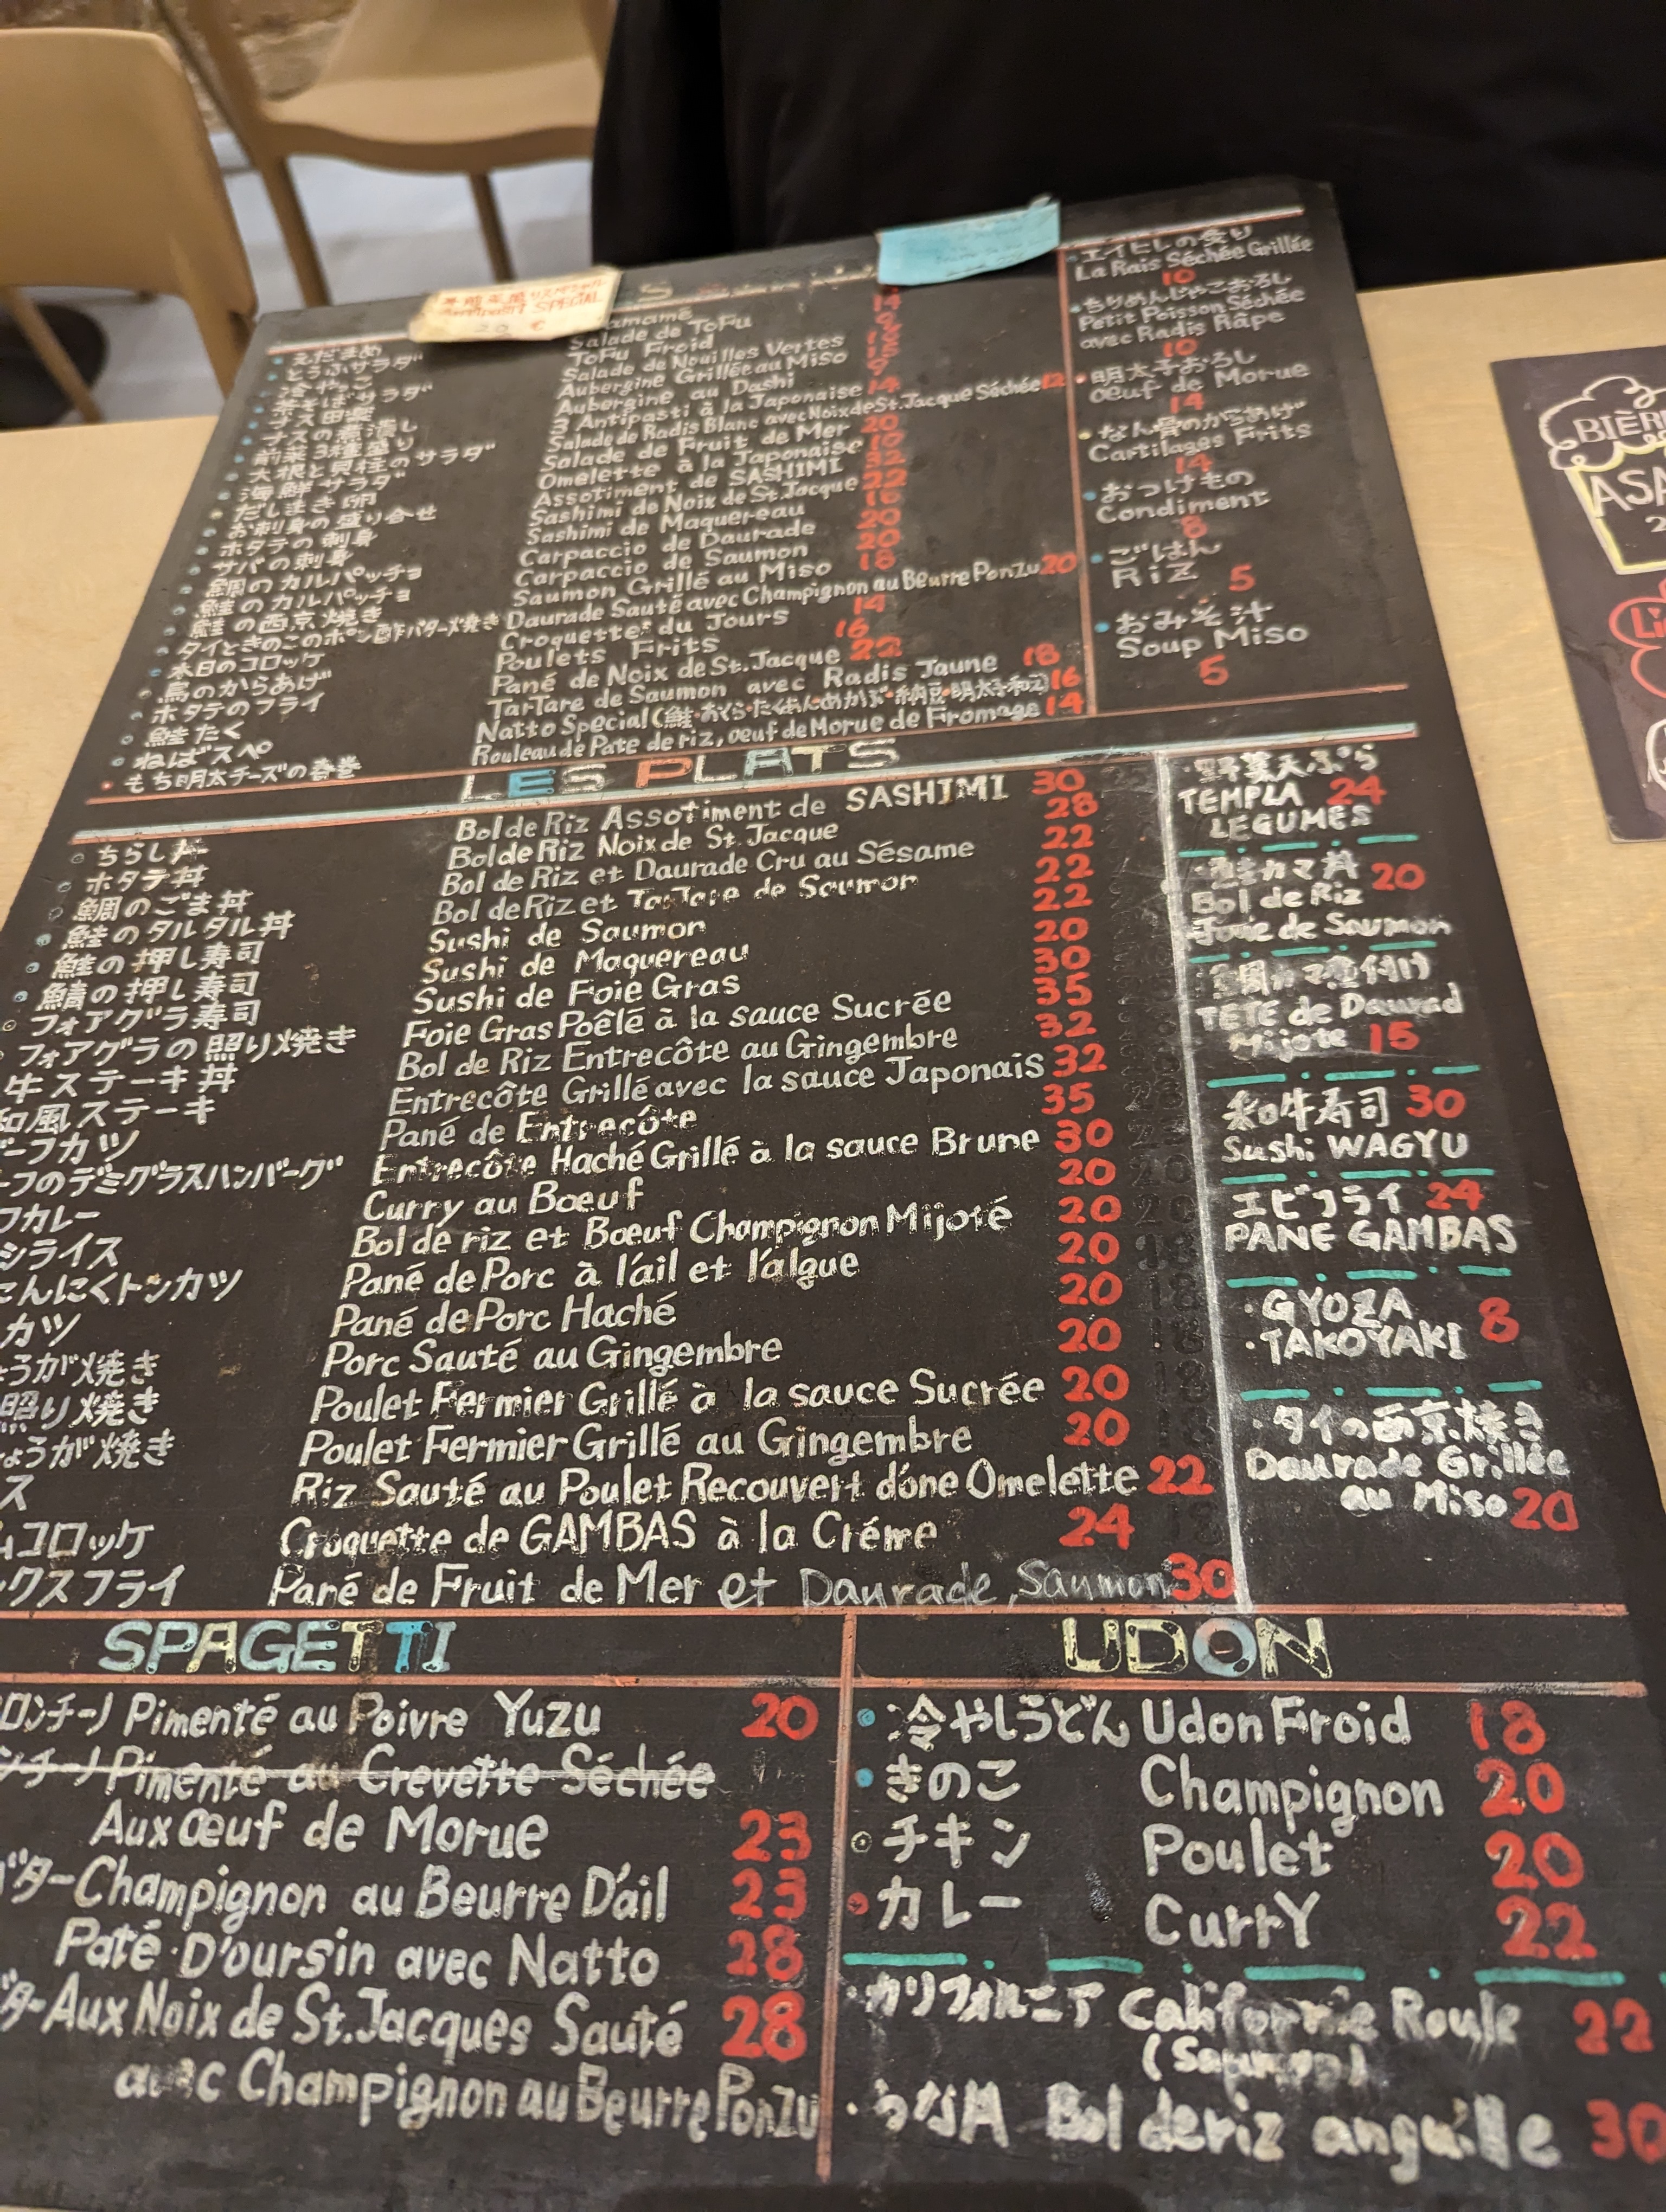 SPECIAL
20 €
えだまめ
とうふサラダ
冷やっこ
茶そばサラダ
ナス田楽
ナスの煮浸し
前菜3種盛り
大根と貝柱のサラダ
海鮮サラダ
だしまき卵
お刺身の盛り合せ
ホタテの刺身
サバの刺身
鯛のカルパッチョ
鮭のカルパッチョ
鮭の西京焼き
タイときのこのポン酢バター焼き
本日のコロッケ
鳥のからあげ
ホタテのフライ
鮭たく
ねばスペ
もち明太チーズの春巻
Salade de ToFu
ToFu Froid
Salade de Nouilles Vertes
Aubergine Grillée au Miso
Aubergine au Dashi
3 Antipasti à la Japonaise 14
Salade de Radis Blanc avec Noix de St. Jacque Séchée 12
Salade de Fruit de Mer 20
Omelette à la Japonaise 10
Assotiment de SASHIMI 32
Sashimi de Noix de St. Jacque 22
Sashimi de Maquereau 16
Carpaccio de Daurade 20
Carpaccio de Saumon 20
Saumon Grillé au Miso 18
Daurade Sauté avec Champignon au Beurre PonZu 20
Croquettes du Jours 14
Poulets Frits 16
Pané de Noix de St. Jacque 22
TarTare de Saumon avec Radis Jaune 18
Natto Special (鮭・おくら・たくあん・めかぶ・納豆・明太子和え) 16
Rouleau de Pate de riz, œuf de Morue de Fromage 14
エイヒレの炙り
La Rais Séchée Grillée
10
ちりめんじゃこおろし
Petit Poisson Séchée
avec Radis Râpe
10
明太子おろし
Oeuf de Morue
14
なん骨のからあげ
Cartilages Frits
14
おつけもの
Condiment
8
ごはん
RiZ 5
おみそ汁
Soup Miso
5
LES PLATS
ちらし丼 Bol de Riz Assotiment de SASHIMI 30
ホタテ丼 Bol de Riz Noix de St. Jacque 28
鯛のごま丼 Bol de Riz et Daurade Cru au Sésame 22
鮭のタルタル丼 Bol de Riz et TarTare de Saumon 22
鮭の押し寿司 Sushi de Saumon 22
鯖の押し寿司 Sushi de Maquereau 20
フォアグラ寿司 Sushi de Foie Gras 30
フォアグラの照り焼き Foie Gras Poêlé à la sauce Sucrée 35
牛ステーキ丼 Bol de Riz Entrecôte au Gingembre 32
和風ステーキ Entrecôte Grillé avec la sauce Japonais 32
ビーフカツ Pané de Entrecôte 35
ーフのデミグラスハンバーグ Entrecôte Haché Grillé à la sauce Brune 30
フカレー Curry au Bœuf 20
シライス Bol de riz et Bœuf Champignon Mijoté 20
にんにくトンカツ Pané de Porc à l'ail et l'algue 20
カツ Pané de Porc Haché 20
ょうが焼き Porc Sauté au Gingembre 20
照り焼き Poulet Fermier Grillé à la sauce Sucrée 20
ょうが焼き Poulet Fermier Grillé au Gingembre 20
ス Riz Sauté au Poulet Recouvert d'óne Omelette 22
ムコロッケ Croquette de GAMBAS à la Créme 24
ックスフライ Pané de Fruit de Mer et Daurade, Saumon 30
野菜天ぷら
TEMPLA 24
LEGUMES
鮭カマ丼 20
Bol de Riz
Joue de Saumon
鯛カマ煮付け
TETE de Daurad
Mijote 15
和牛寿司 30
Sushi WAGYU
エビフライ 24
PANE GAMBAS
・GYOZA
・TAKOYAKI 8
・タイの西京焼き
Daurade Grillée
au Miso 20
SPAGETTI
ロンチーノ Pimenté au Poivre Yuzu 20
ンチーノ Pimenté au Crevette Séchée
Aux Œuf de Morue 23
バター Champignon au Beurre D'ail 23
Paté D'oursin avec Natto 28
バター Aux Noix de St. Jacques Sauté 28
avec Champignon au Beurre PonZu
UDON
冷やしうどん Udon Firoid 18
きのこ Champignon 20
チキン Poulet 20
カレー CurrY 22
・カリフォルニア Californie Roule 22
(Saumon)
・うな丼 Bol de riz anguille 30
BIÈR
ASA